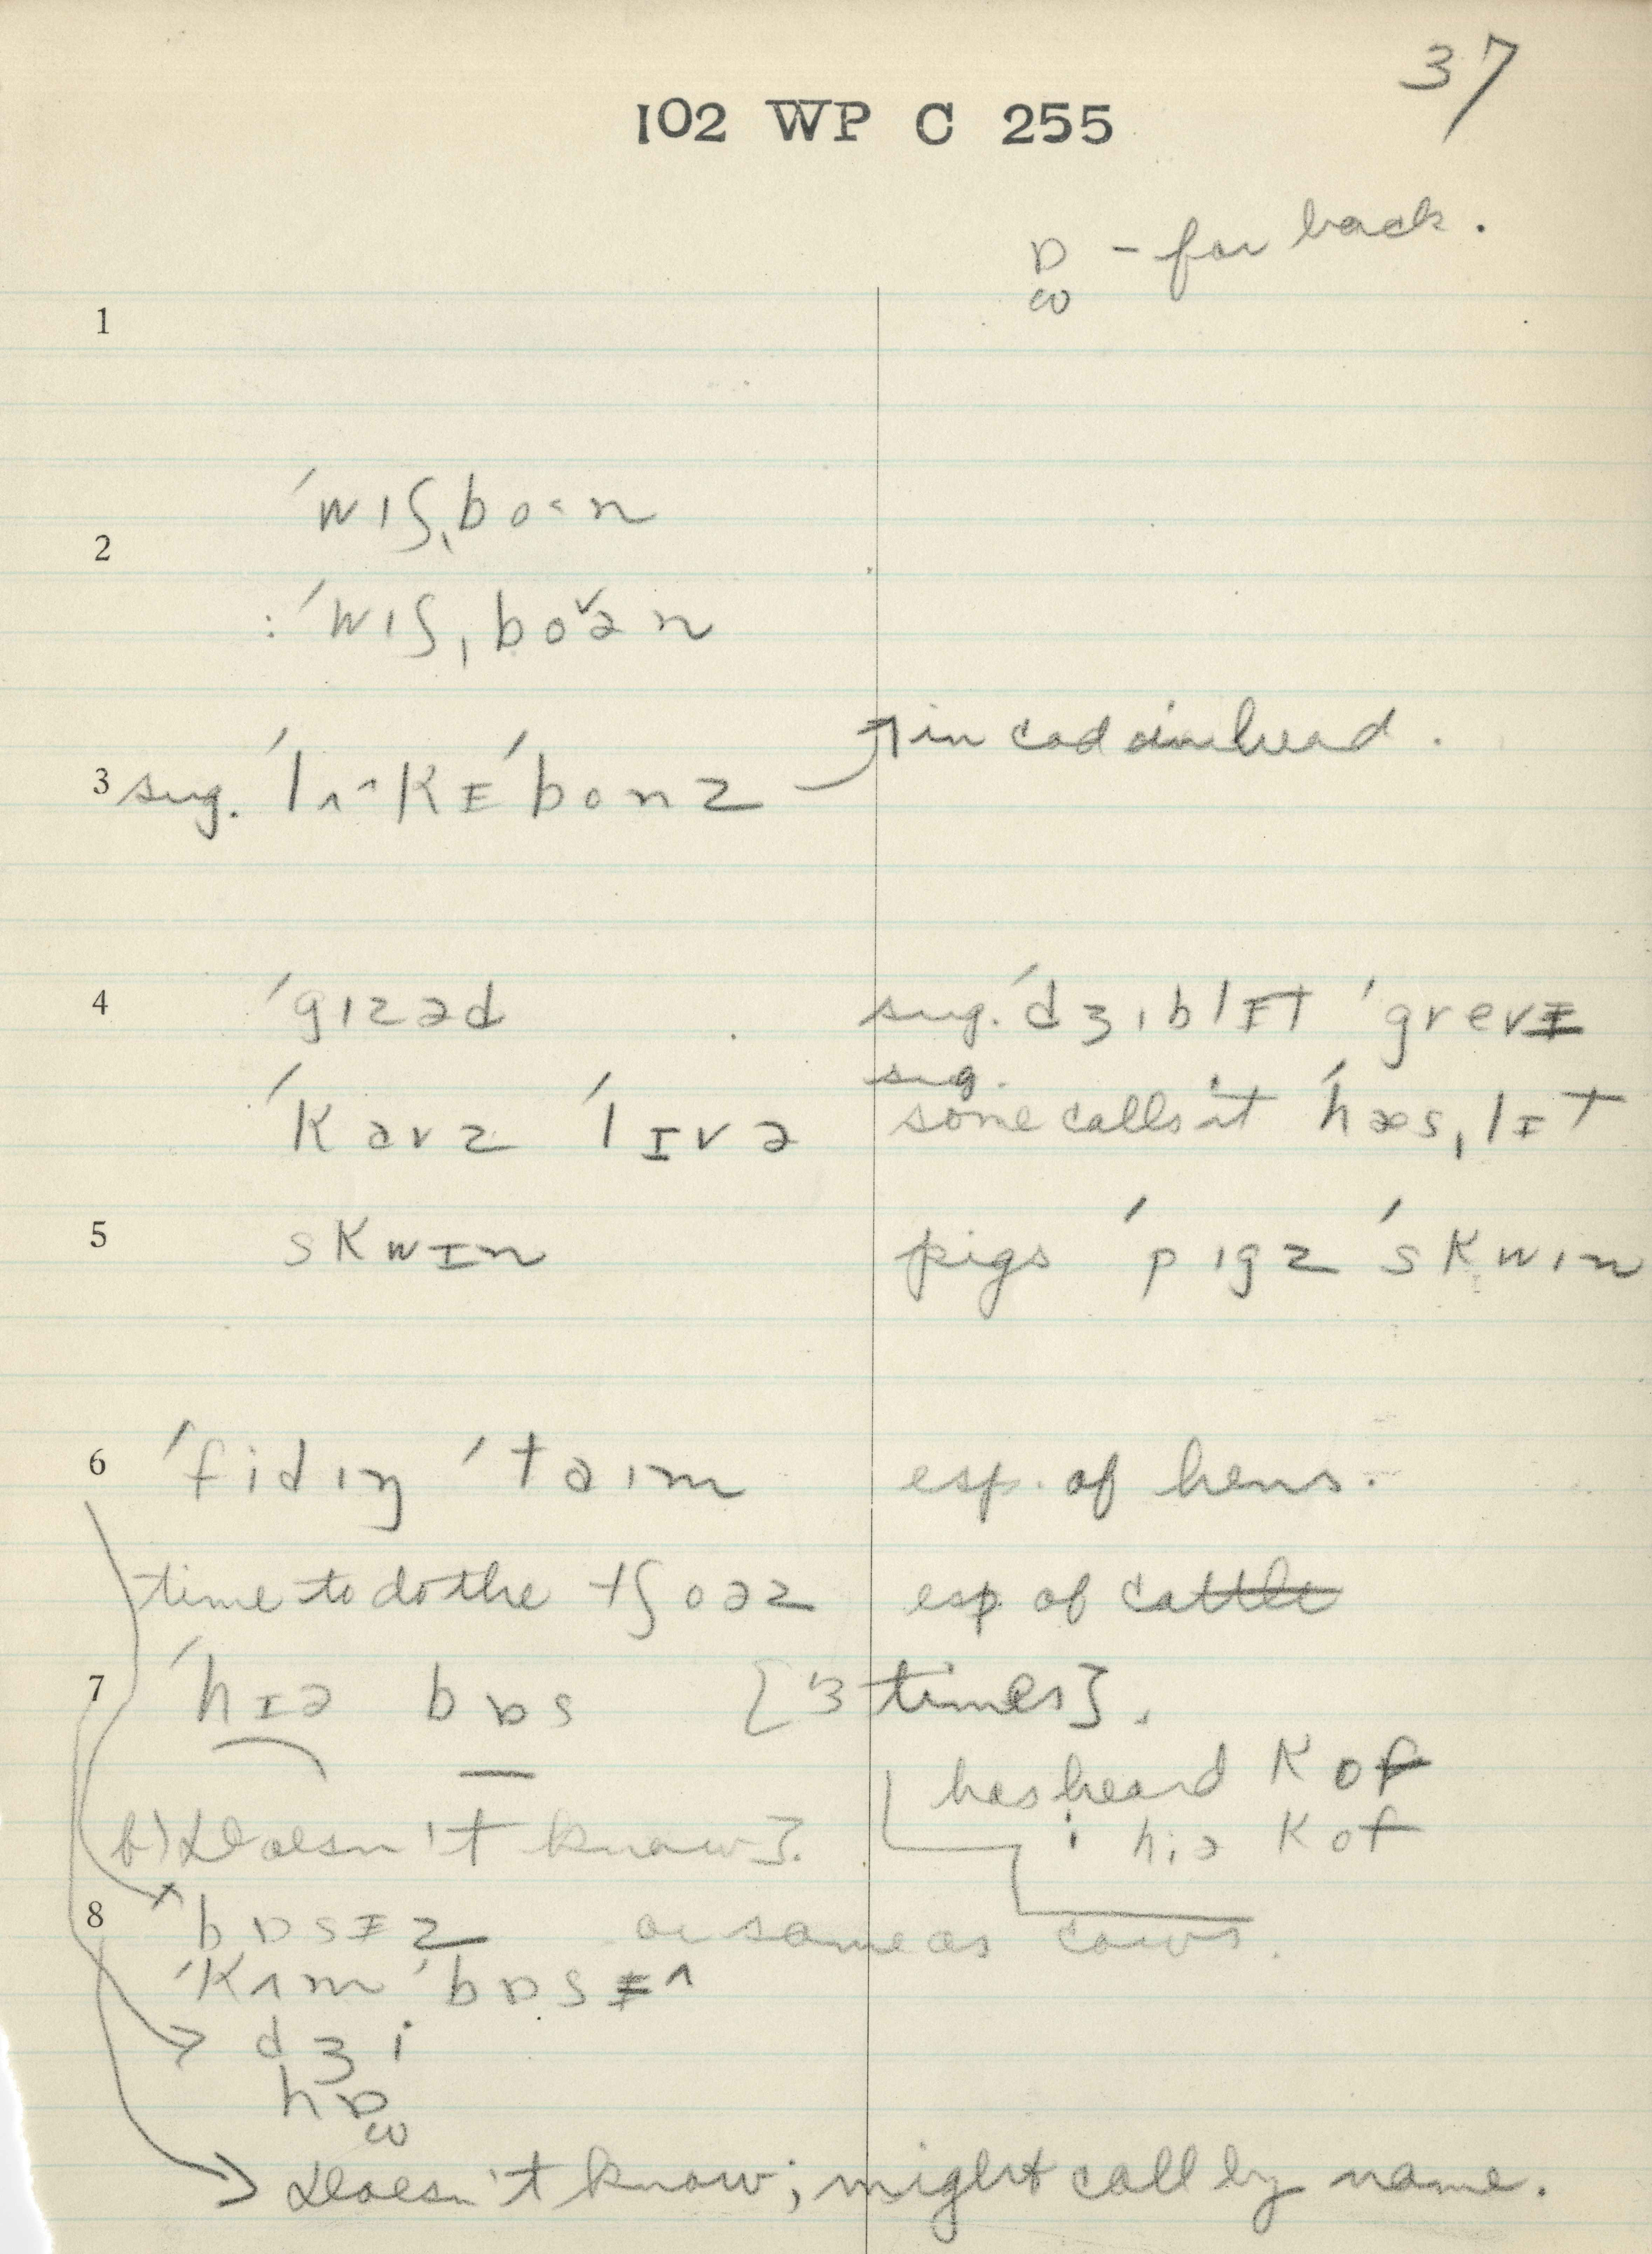 37
102 WP C 255
ɒ̫ - far back.
1
2 ˈwɪʃˌboˑn
: ˈwɪʃˌboˇən
3 sug. ˈlʌˆkɪˈbonz
in cod head.
4 ˈgɪzəd sug. ˈdʒɪblɪt ˈgrevɪ
sug.
ˈkavz ˈlɪvə some calls it ˈhæsˌlɪt
5 skwɪn pigs ˈpɪgz ˈskwɪn
6 ˈfidɪŋ ˈtaɪm esp. of hens.
time to do the tʃoəz esp of cattle
7 ˈhɪə bɒs [3 times].
has heard kof
b) Doesn't know]. : hiə kof
8 bɒsɪz or same as cows.
ˈkʌm ˈbɒsɪ^
dʒi
hɒ̫
Doesn't know; might call by name.